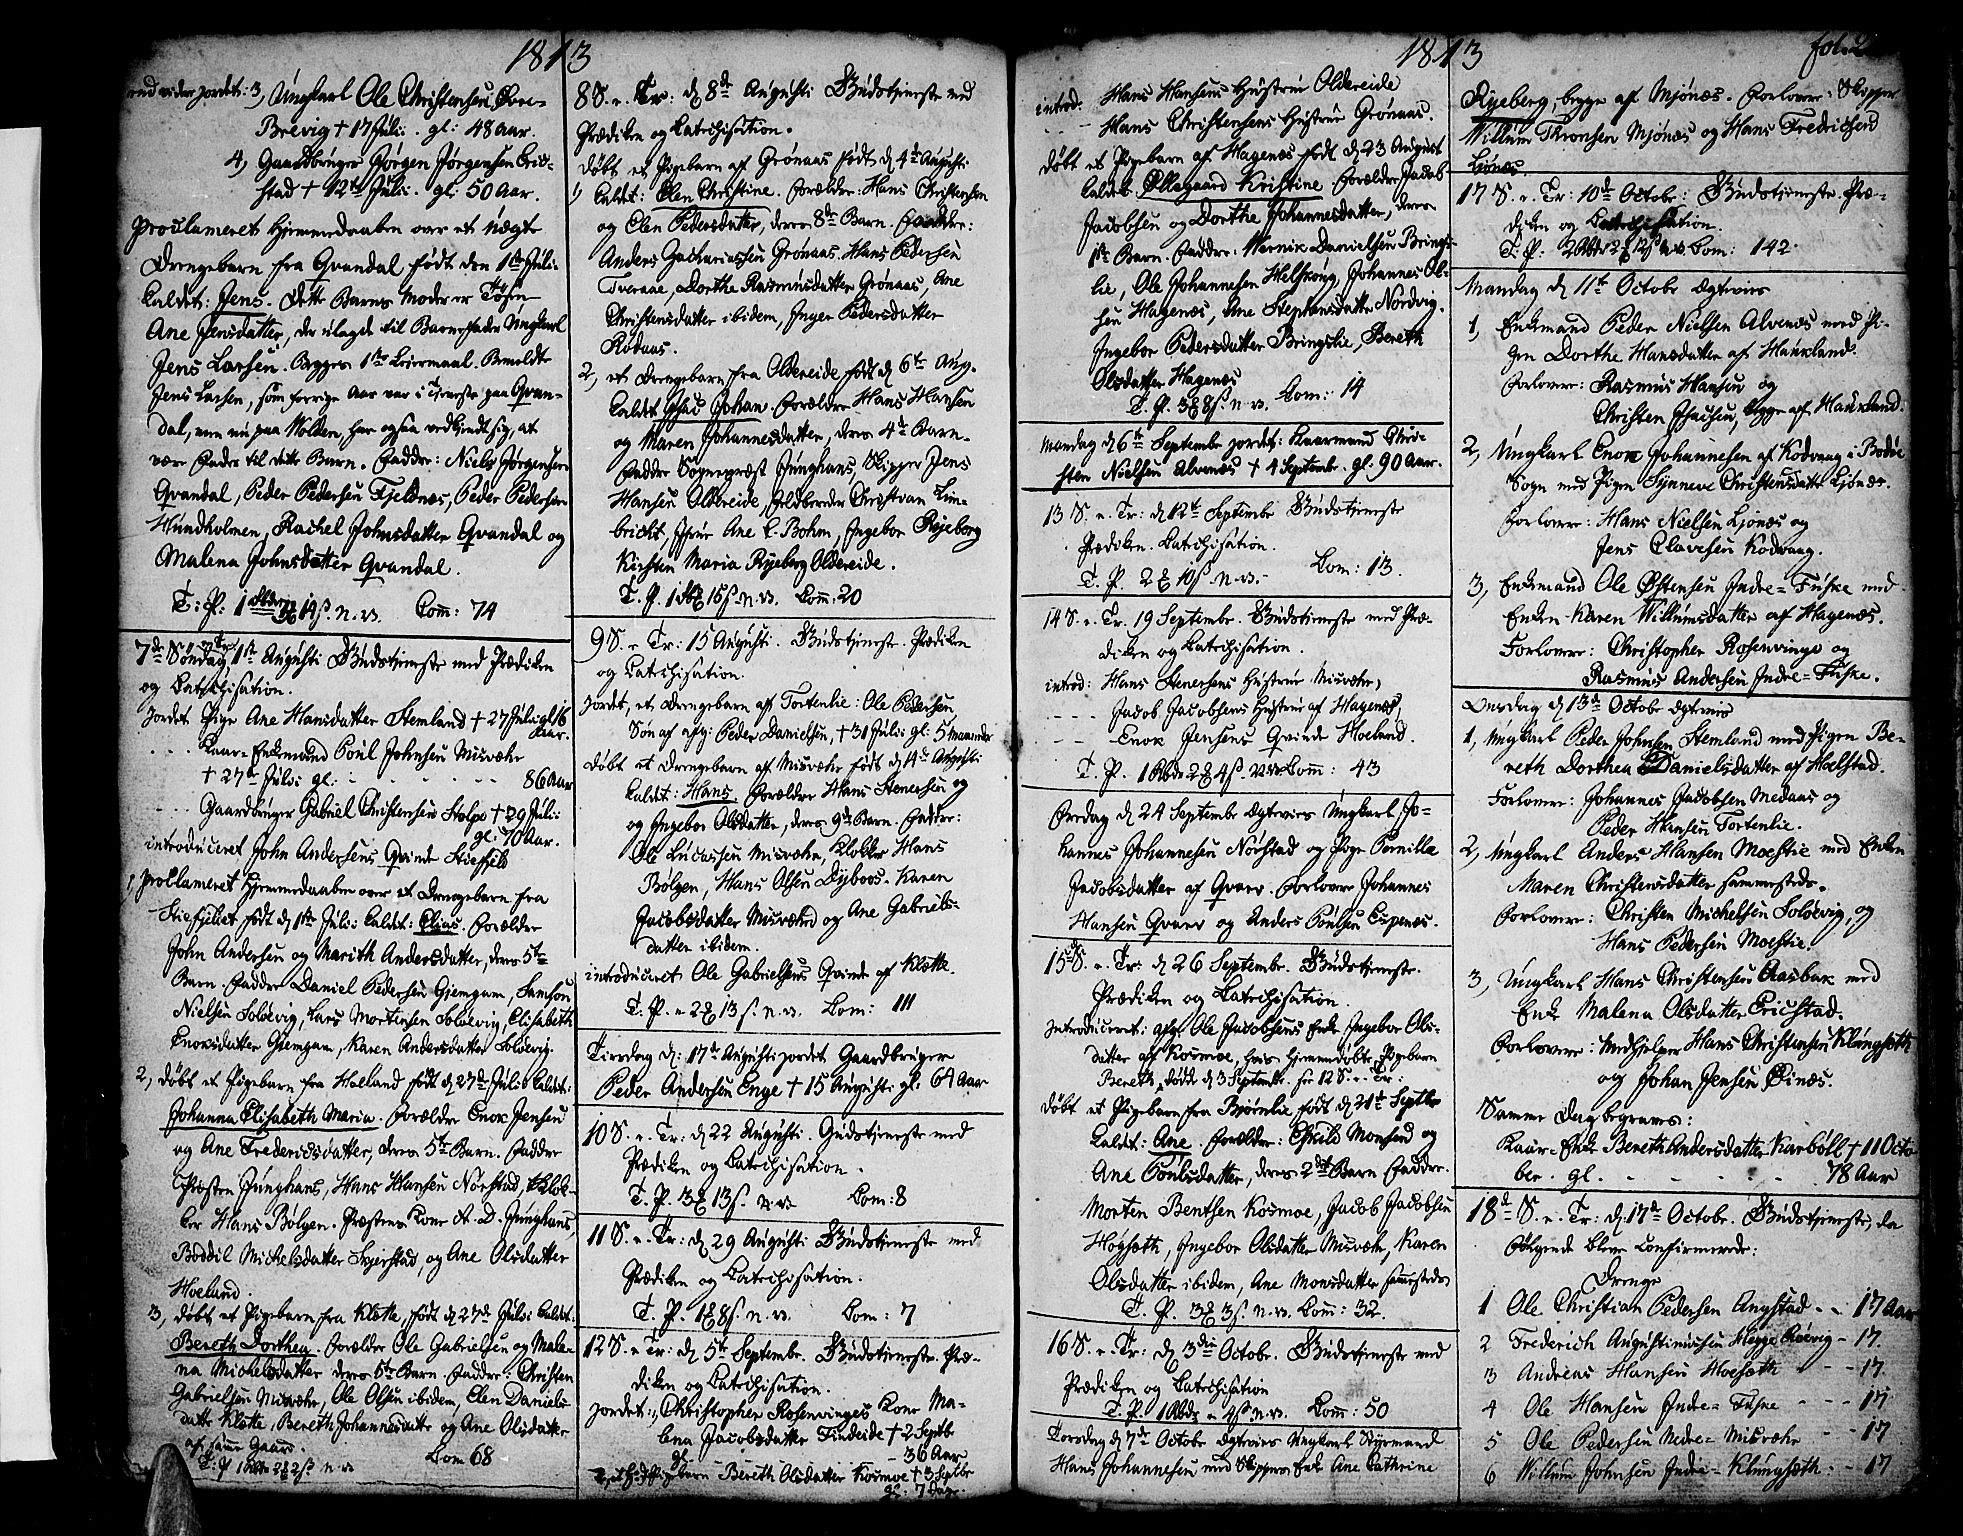 1813
end vider jordet: 3, Ungkarl Ole Christensen Øvre-
Brevig + 17 Juli. gl: 48 Aar.
4, Gaardbruger Jørgen Jørgensen Eric-
stad + 12te Juli. gl: 50 Aar.
Proclameret Hjemmedaaben over et uægte
Drengebarn fra Qvandal født den 1ste Juli.
Caldet: Jens. Dette Barns Moder er Tøsen
Ane Jensdatter, der udlagde til Barnefader Ungkarl
Jens Larsen. Begges 1ste Leiermaal. Bemeldte
Jens Larsen, som forrige Aar var i Tjeneste paa Qvan-
dal, men nu paa Molden, har ogsaa vedkjendt sig, at
være Fader til dette Barn. Faddere: Niels Jørgensen
Qvandal, Peder Pedersen Fjeldnes, Peder Pedersen
Hundholmen, Rachel Johnsdatter Qvandal og
Malena Johnsdatter Qvandal.
T: P: 14ß. n. v. Com: 74
7de Søndag 1ste Augusti Gudstjeneste med Prædiken
og Catechisation.
Jordet Pige Ane Hansdatter Stemland + 27 Juli gl 16
Aar.
Kaar-Enkemand Poul Johnsen Misvæhr
+ 27de Juli gl: - - - - 86 Aar
Gaardbruger Gabriel Christensen Stolpe + 29 Juli:
gl: 70 Aar.
introduceret John Andersens Qvinde Stiefjeld
1, Proclameret Hjemmedaaben over et Drengebarn fra
Stiefjeldet født d 1ste Juli: Caldet: Elias. Forældre
John Andersen og Marith Andersdatter, deres 5te
Barn. Faddere Daniel Pedersen Gjemgam, Samson
Nielsen Soløevig, Lars Mortensen Soløevig, Elisabeth
Enoksdatter Gjemgam, Karen Andersdatter Soløevig.
2, døbt et Pigebarn fra Hoeland født d 27de Julii Caldet:
Johanna Elisabeth Maria. Forældre Enok Jensen
og Ane Fredericsdatter, deres 5te Barn. Faddere
Præsten Junghans, Hans Hansen Nørstad, Klok-
ker Hans Bølgen. Præstens Kone A. D. Junghans,
Boddil Michelsdatter Skjerstad, og Ane Olsdatter
Hoeland.
3, døbt et Pigebarn fra Kløtte, født d 27de Juli: Caldet:
Bereth Dorthea. Forældre Ole Gabrielsen og Male-
na Michelsdatter deres 5te Barn. Faddere: Christen
Gabrielsen Misvæhr, Ole Olsen ibidem, Elen Daniels-
datter Kløtte, Bereth Johannesdatter og Ane Olsdatter
af samme Gaard.
Com 68
8 S. e. Tr: d 8de Augusti Gudstjeneste med
Prædiken og Catechisation.
døbt et Pigebarn af Grønaas født d 4de Augusti
1, Caldet: Elen Christine. Forældre: Hans Christensen
og Elen Pedersdatter, deres 8de Barn. Faddere:
Anders Zachariassen Grønaas, Hans Pedersen
Tveraae, Dorthe Rasmusdatter Grønaas, Ane
Christensdatter ibidem, Inger Pedersdatter
Rødaas.
2, et Drengebarn fra Oldereide født d 6te Aug.
Caldet Isac Johan. Forældre Hans Hansen
og Maren Johannesdatter, deres 4de Barn.
Faddere Sognepræst Junghans, Skipper Jens
Hansen Oldereide, Christian Lim-
bricht, Jfrue Ane C. Bohm, Ingebor Ryeberg
Kirsten Maria Ryeberg Oldereide.
T. P. 15ß. n. v. Com: 20
9 S. e. Tr: 15 Augusti. Gudstjeneste. Prædiken
og Catechisation.
Jordet, et Drengebarn af Tortenlie: Ole Pedersen
Søn af afg: Peder Danielsen, + 31 Juli: gl: 5 Maaneder
døbt et Drengebarn af Misvæhr født d 14de Augusti
Caldet: Hans. Forældre Hans Stenersen og
og Ingebor Olsdatter, deres 9de Barn. Faddere:
Ole Lucassen Misvæhr, Klokker Hans
Bølgen, Hans Olsen Dybvos. Karen
Jacobsdatter Misvæhr og Ane Gabriels-
datter ibidem.
introduceret Ole Gabrielsens Qvinde af Kløtte.
T. P. 13ß. n. v. Com: 111
Tirsdag d: 17de Augusti jordet Gaardbruger
Peder Andersen Enge + 15 Augusti gl: 64 Aar
10 S. e. Tr: d 22 Augusti. Gudstjeneste med
Prædiken og Catechisation.
T. P. 13ß. n. v. Com: 8
11 S. e. Tr: d 29 Augusti Gudstjeneste med
Prædiken og Catechisation.
T. P. 8ß. n. v. Com: 7
12 S. e. Tr: d 5te Septembr. Gudstjeneste. Præ-
diken og Catechisation.
Jordet: 1, Christopher Rosenvinges Kone Ma-
lena Jacobsdatter Findeide + 2 Septbr
gl - 36 Aar
2, et Pigebarn Bereth Olsdatter Kosmoe + 3 Septbr
gl: 7 Dage.
1813
introd. Hans Hansens Hustrue Oldereide
Hans Christensens Hustrue Grønaas.
døbt et Pigebarn af Hagenæs født d 23 August
Caldet: Ollegaard Kristine. Forældre Jacob
Jacobsen og Dorthe Johannesdatter, deres
1ste Barn. Faddere: Wernik Danielsen Brings-
lie, Ole Johannesen Helskoug, Johannes Ol-
sen Hagenæs, Ane Stephansdatter Nordvig.
Ingebor Pedersdatter Bringslie, Bereth
Olsdatter Hagenæs
T. P. 3 8ß. n. v. Com: 14
Mandag d 6te Septembr jordet: Kaarmand Chri-
sten Nielsen Alvenæs + 4 Septembr. gl. 90 Aar.
13 S. e. Tr: d 12te Septembr Gudstjeneste
Prædiken. Catechisation.
T. P. 2 10ß. n. v. - Com: 13.
14 S. e. Tr. 19 Septembr. Gudstjeneste med Præ-
diken og Catechisation.
introd: Hans Stenersens Hustrue Misvæhr,
- - - - Jacob Jacobsens Hustrue af Hagenæs,
- - Enok Jensens Qvinde Hoeland.
T. P. 1 Rbdr 4ß n v Com: 43
Fredag d 24 Septembr Egteviet Ungkarl Jo-
hannes Johannesen Nørstad og Pige Pernille
Jacobsdatter af Qvarv. Forlovere Johannes
Hansen Qvarv og Anders Poulsen Espenæs.
15de S. e. Tr: d 26 Septembr. Gudstjeneste.
Prædiken og Catechisation.
Introduceret: afg: Ole Jacobsens Enke Ingebor Ols-
datter af Kosmoe, hvis hjemmedøbte Pigebarn
Bereth, døde d 3 Septembr. see 12 S. e. Tr:
døbt et Pigebarn fra Bjørnlie født d 21de Septbr
Caldet: Ane. Forældre: Eskild Monsen og
Ane Poulsdatter, deres 2det Barn Faddere.
Morten Bentsen Kosmoe, Jacob Jacobsen
Høgsæth, Ingebor Olsdatter Misvæhr, Karen
Olsdatter ibidem, Ane Monsdatter sammesteds
T. P. 3 3ß. n. v. Com: 32.
16 S. e. Tr: d 3die Octobr. Gudstjeneste med
Prædiken og Catechisation
T. P. 1 Rbdr 4ß. n. v. Com: 50
Torsdag d 7de Octobr Egteviet Ungkarl Styrmand
Hans Johannesen med Skippers Enke Ane Cathrine
fol.
Ryeberg, begge af Mjønæs. Forlovere: Skipper
Willum Thronsen Mjønæs og Hans Fredrichsen
Ljønæs.
17 S. e. Tr: 10de Octobr: Gudstjeneste. Præ-
diken og Catechisation.
T. P: 12ß n. v. Com: 142.
Mandag d 11te Octobr Egteviet
1, Enkemand Peder Nielsen Alvenæs med Pi-
gen Dorthe Hansdatter af Haukland.
Forlovere: Rasmus Hansen og
Christen Isacsen, begge af Haukland.
2, Ungkarl Enok Johannesen af Kodvaag i Bodøe
Sogn med Pigen Synneve Christensdatter Ljønæs.
Forlovere: Hans Nielsen Ljønæs og
Jens Clavesen Kodvaag.
3, Enkemand Ole Østensen Indre-Fuske med
Enken Karen Willumsdatter af Hagenæs.
Forlovere: Christopher Rosenvinge og
Rasmus Andersen Indre-Fuske.
Onsdag d 13de Octobr Egteviet
1, Ungkarl Peder Johnsen Stemland med Pigen Be-
reth Dorthea Danielsdatter af Hoelstad.
Forlovere: Johannes Jacobsen Medaas og
Peder Hansen Tortenlie.
2, Ungkarl Anders Hansen Moestie med Enken
Maren Christensdatter sammesteds.
Forlovere: Christen Michelsen Soløevig og
Hans Pedersen Moestie
3, Ungkarl Hans Christensen Aasbak med
Enke Malena Olsdatter Ericstad.
Forlovere: Medhjelper Hans Christensen Klungsæth
og Johan Jensen Øinæs.
Samme Dag begraves:
Kaar-Enke Bereth Andersdatter Karbøll + 11 Octo
ber. gl. - - - - 78 Aar
18de S. e. Tr: d 17de Octobr. Gudstjeneste, da
følgende bleve Confirmerede:
Drenge
1 Ole Christian Pedersen Angstad - - 17 Aar
2 Frederich Augustinusen Hegge Røevig - 17.
3 Andreas Hansen Moesæth - - 17.
4 Ole Hansen Indre-Fuske - - - 17
5 Ole Pedersen Nedre-Misvæhr - - 17
6 Willum Johnsen Indre-Klungsæth: - - 17